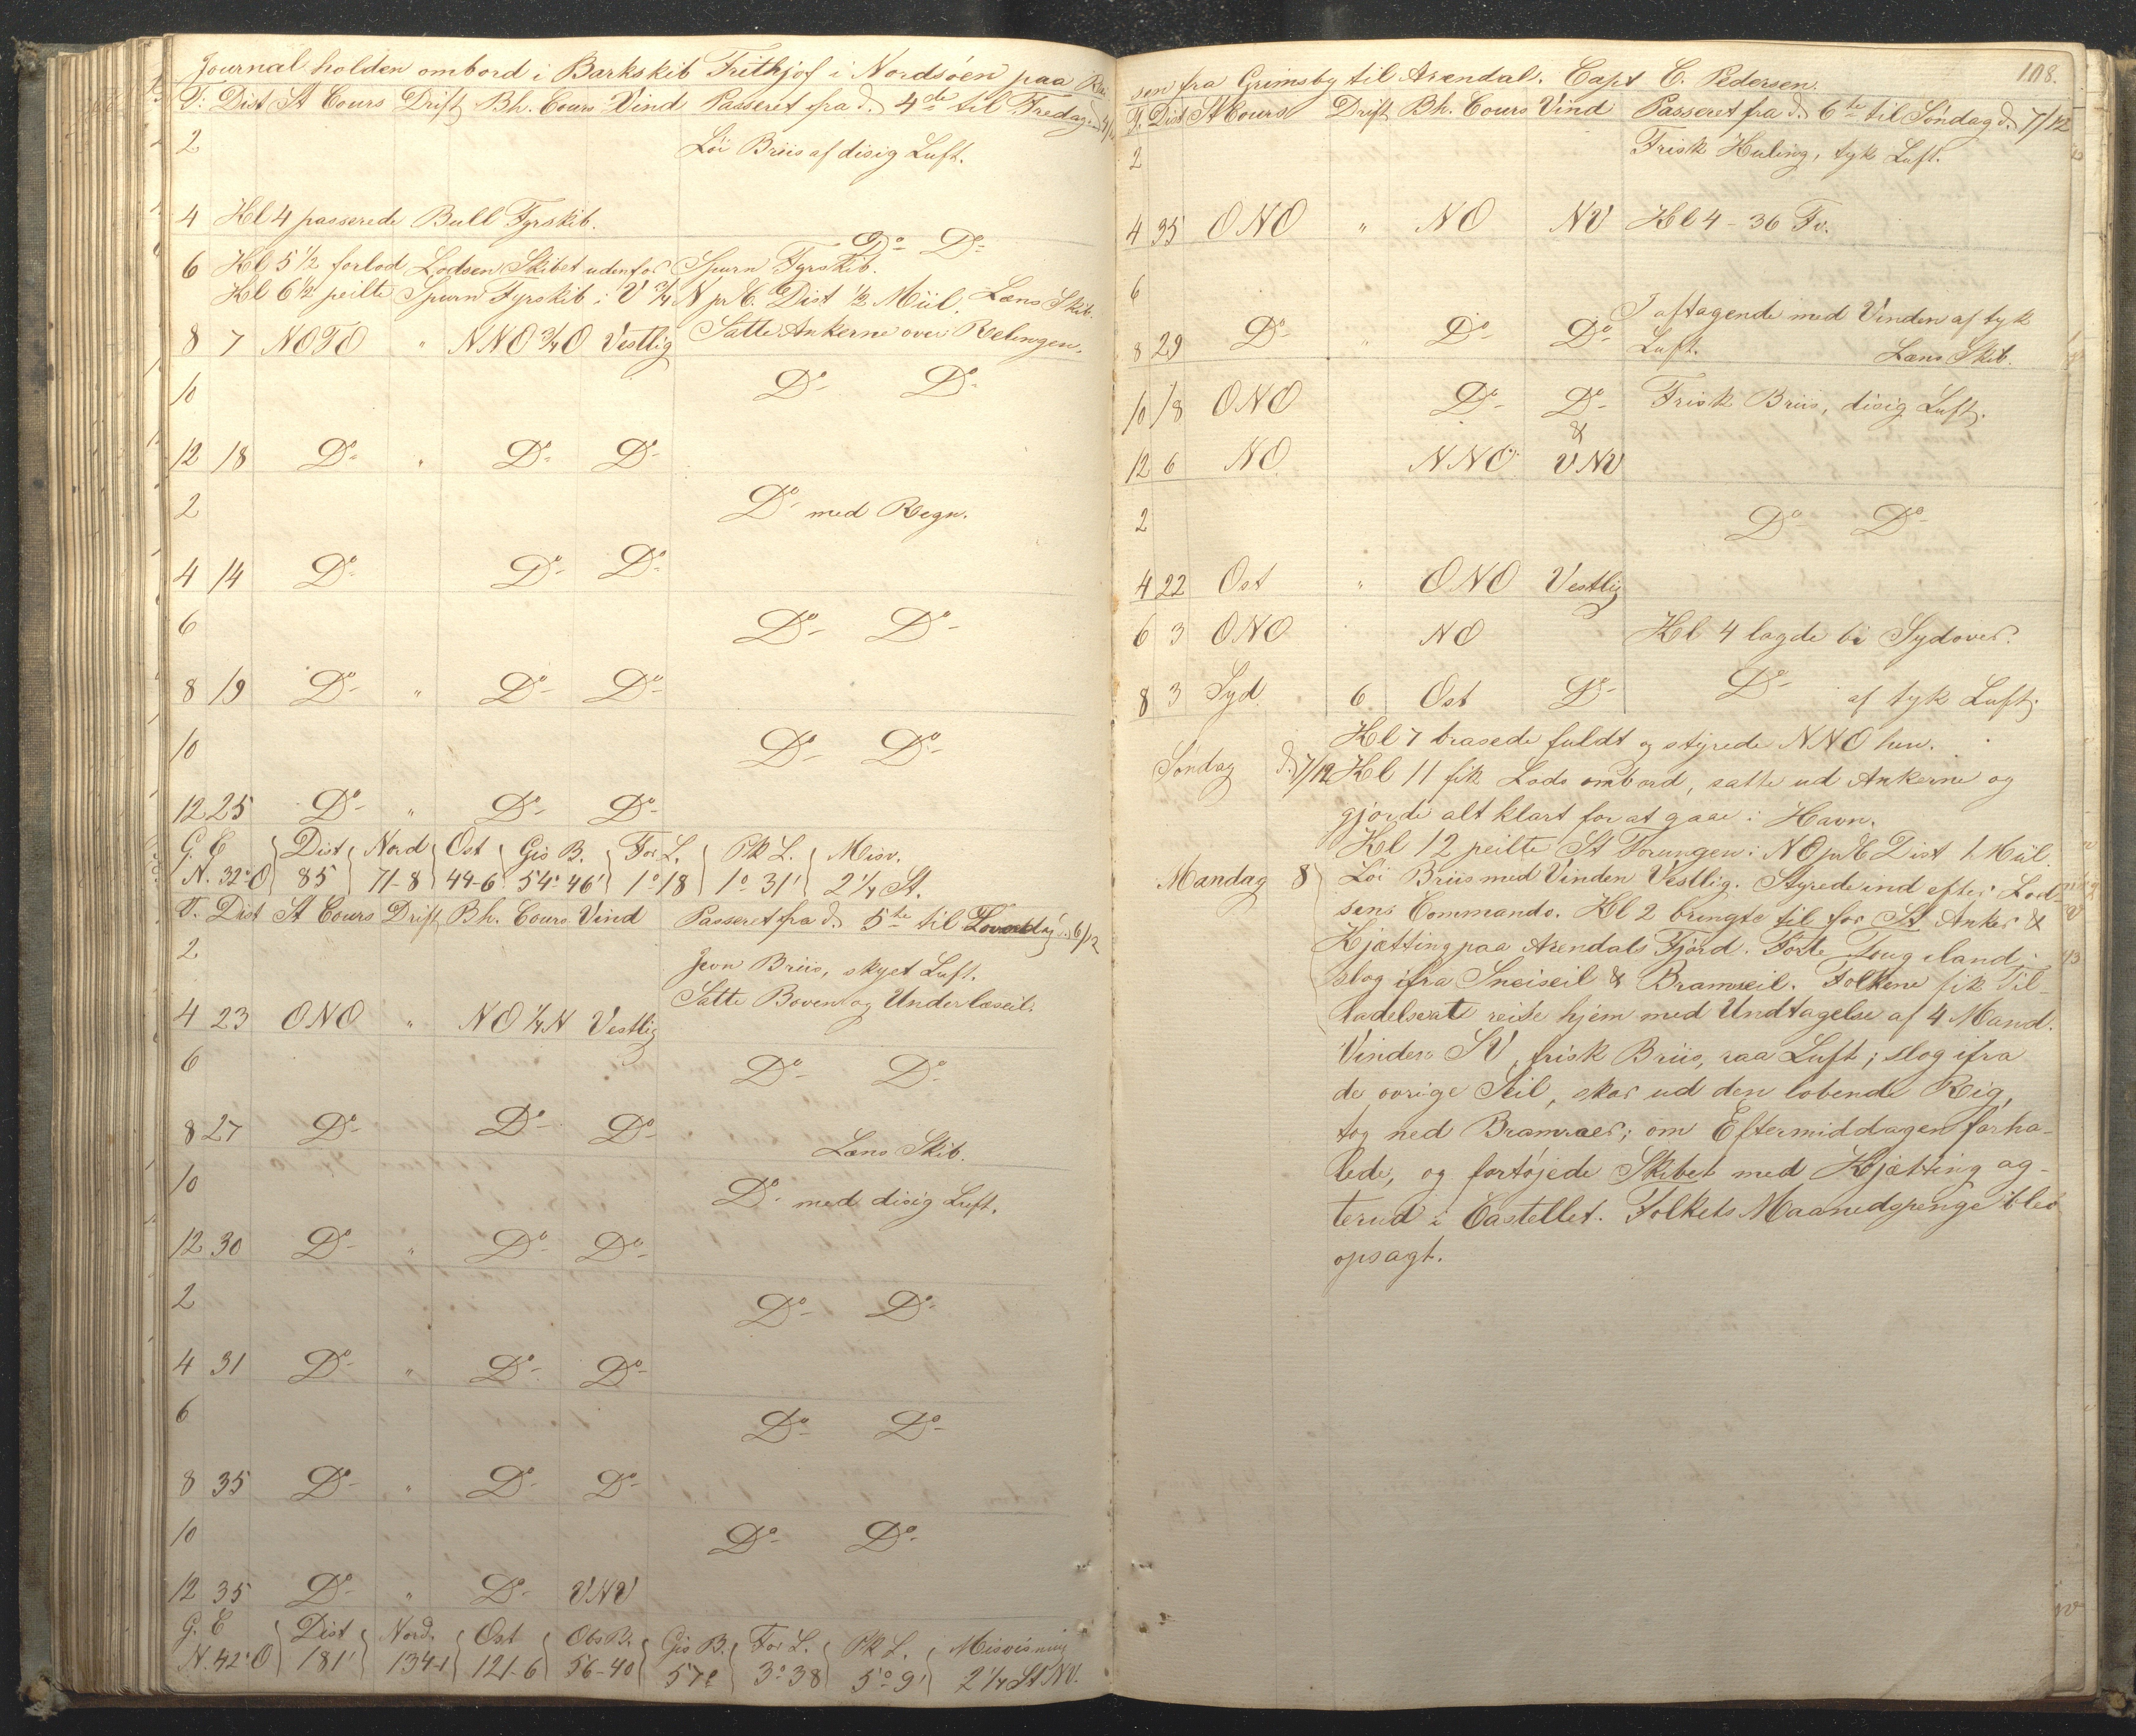 Journal holden ombord i Barkskib Frithjof i Nordsöen paa Rei
T: Dist St Cours Drift Bh. Cours Vind Passeret fra d. 4de til Fredag d. 5/12
2 Löi Briis af disig Luft.
4 Kl 4 passerede Bull Fyrskib.
Do Do
6 Kl 5 1/2 forlod Lodsen Skibet udenfor Spurn Fyrskib.
Kl 6 1/2 peilte Spurn Fyrskib i V 3/4 N pr C. Dist 1/2 Miil. Læns Skib.
8 7 NOTO " NNO 3/4 O Vestlig Satte Ankerne over Relingen.
10 Do Do
12 18 Do " Do Do
2 Do med Regn.
4 14 Do Do Do
6 Do Do
8 19 Do " Do Do
10 Do Do
12 25 Do " Do Do
G. C Dist Nord Ost Gis B. For L. Pk L. Misv.
N. 32° O 85 71-8 44-6 54° 46' 1° 18 1° 31' 2 1/4 St.
T. Dist St Cours Drift Bh. Cours Vind Passeret fra d. 5te til Loverdag d. 6/12
2 Jevn Briis, skyet Luft.
Satte Boven og Underlæseil.
4 23 ONO " NO 1/4 N Vestlig
6 Do Do
8 27 Do Do Do
Læns Skib.
10 Do med disig Luft.
12 30 Do " Do Do
2 Do Do
4 31 Do " Do Do
6 Do Do
8 35 Do " Do Do
10 Do Do
12 35 Do " Do VNV
G. C Dist Nord. Ost Obs B. Gis B. For L. Pk L. Misvisning
N. 42° O 181' 134-1 121-6 56-40 57° 3° 38 5° 9' 2 1/4 St NV.
108.
sen fra Grimsby til Arendal. Capt C. Pedersen.
T. Dist St Cours Drift Bh. Cours Vind Passeret fra d. 6te til Söndag d. 7/12
2 Frisk Kuling, tyk Luft.
4 35 ONO " NO NV Kl 4 - 36 Fv.
6
I aftagende med Vinden af tyk
8 29 Do " Do Do Luft. Læns Skib.
10 18 ONO Do Do Frisk Briis, disig Luft.
&
12 6 NO NNO VNV
2 Do Do
4 22 Ost " ONO Vestlig
6 3 ONO NO Kl 4 lagde bi Sydover.
8 3 Syd 6 Ost Do Do af tyk Luft.
Kl 7 brasede fuldt og styrede NNO hen.
Söndag d. 7/12 Kl 11 fik Lods ombord, satte ud Ankerne og
gjorde alt klart for at gaae i Havn.
Kl 12 peilte St Torungen i NO pr C Dist 1 Miil.
Mandag 8 Löi Briis med Vinden Vestlig. Styrede ind efter Lod-
sens Commando. Kl 2 bringte til for St Anker &
Kjætting paa Arendals Fjord. Förte Toug iland;
slog ifra Sneiseil & Bramseil. Folkene fik Til-
ladelse at reise hjem med Undtagelse af 4 Mand.
Vinden SV, frisk Briis, raa Luft; slog ifra
de övrige Seil, skar ud den löbende Rig,
tog ned Bramraaer; om Eftermiddagen forha-
lede, og fortöjede Skibet med Kjætting ag-
terud i Castellet. Folkets Maanedspenge blev
opsagt.